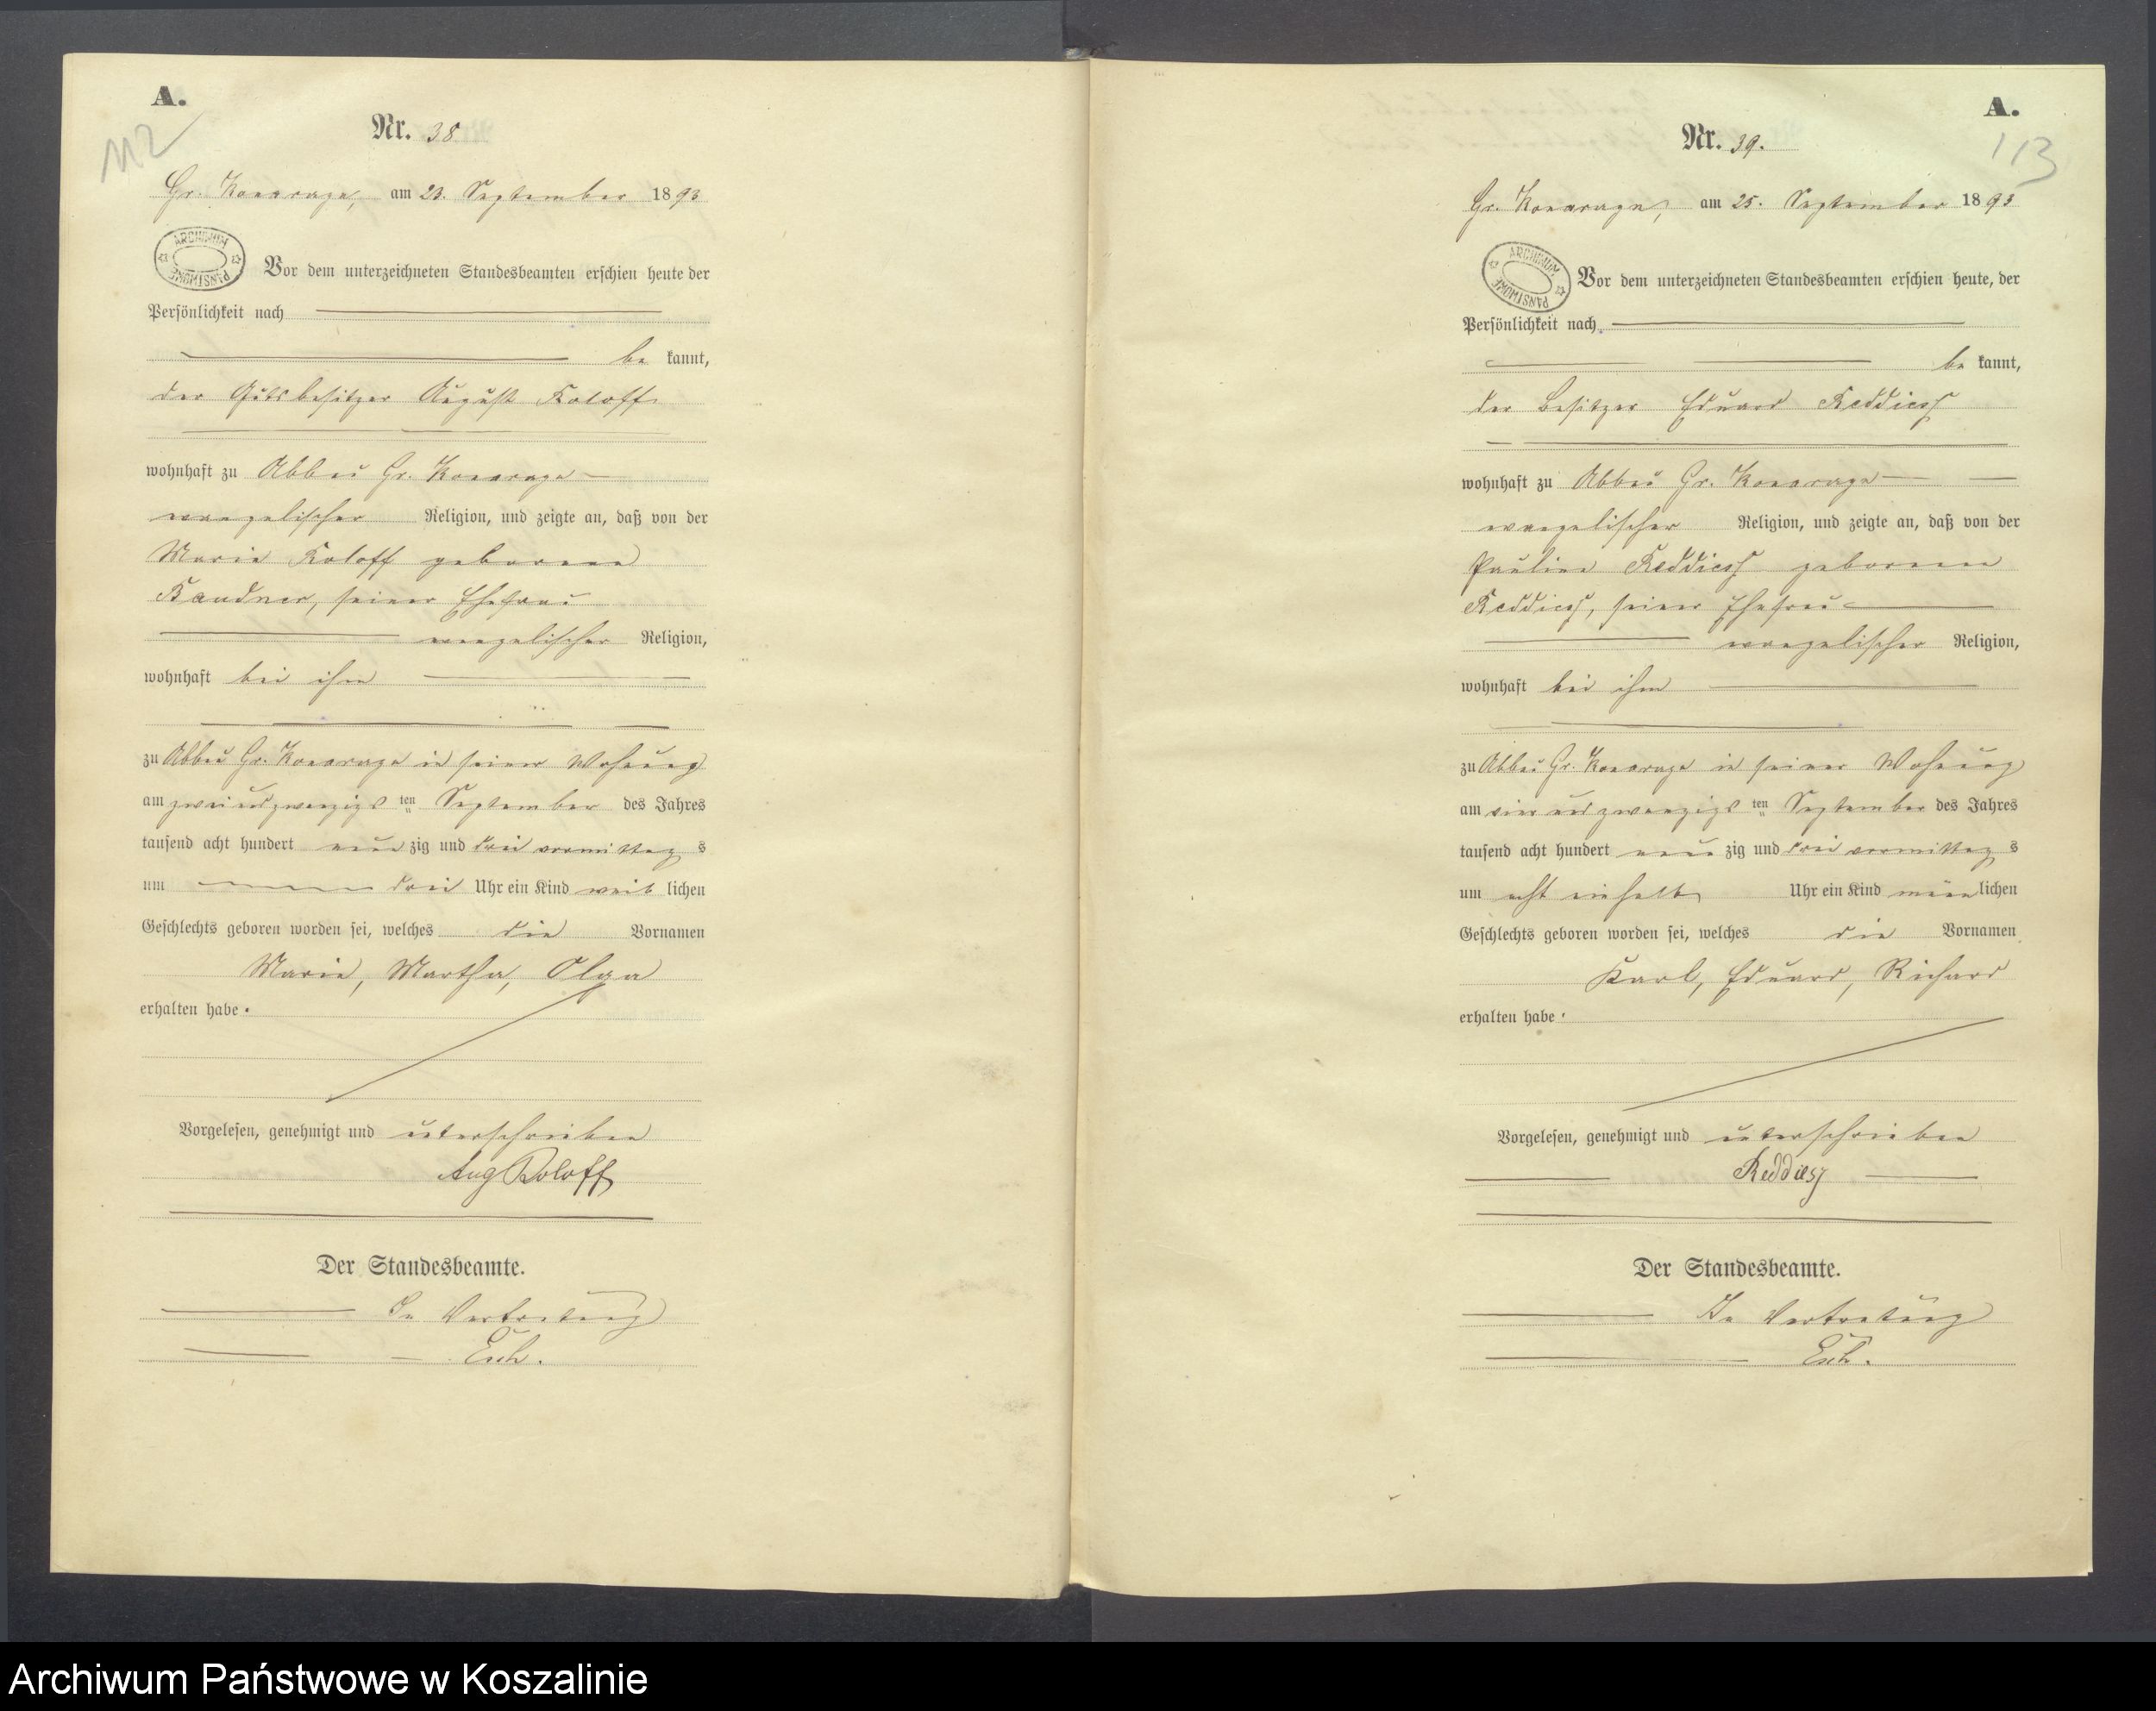 A.
112
Nr. 38
Gr. Konarzyn, am 23. September 1893
ARCHIWUM PAŃSTWOWE
Vor dem unterzeichneten Standesbeamten erschien heute der
Persönlichkeit nach
be kannt,
der Gutsbesitzer August Roloff
wohnhaft zu Abbau Gr. Konarzyn
evangelischer Religion, und zeigte an, daß von der
Marie Roloff geborenen
seiner Ehefrau
evangelischer Religion,
wohnhaft bei ihm
zu Abbau Gr. Konarzyn in seiner Wohnung
am zweiundzwanzigs ten September des Jahres
tausend acht hundert neun zig und drei vormittag s
um drei Uhr ein Kind weib lichen
Geschlechts geboren worden sei, welches die Vornamen
Marie, Martha, Olga
erhalten habe.
Vorgelesen, genehmigt und unterschrieben
Aug Roloff
Der Standesbeamte.
In Vertretung
A.
113
Nr. 39.
Gr. Konarzyn, am 25. September 1893
ARCHIWUM PAŃSTWOWE
Vor dem unterzeichneten Standesbeamten erschien heute, der
Persönlichkeit nach
be kannt,
der Besitzer Eduard Reddiess
wohnhaft zu Abbau Gr. Konarzyn
evangelischer Religion, und zeigte an, daß von der
Pauline Reddiess geborenen
Reddiess, seiner Ehefrau
evangelischer Religion,
wohnhaft bei ihm
zu Abbau Gr. Konarzyn in seiner Wohnung
am vierundzwanzigs ten September des Jahres
tausend acht hundert neun zig und drei vormittag s
um acht einhalb Uhr ein Kind männ lichen
Geschlechts geboren worden sei, welches die Vornamen
Karl, Eduard, Richard
erhalten habe.
Vorgelesen, genehmigt und unterschrieben
Reddiess
Der Standesbeamte.
In Vertretung
Archiwum Państwowe w Koszalinie